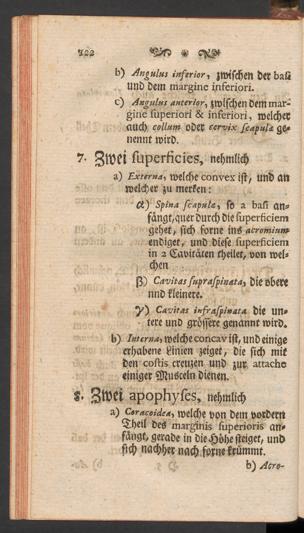 122
b) Angulus inferior, zwischen der basi
und dem margine inferiori.
c) Angulus anterior, zwischen dem mar-
gine superiori & inferiori, welcher
auch collum oder cervix scapulæ ge-
nennt wird.
7. Zwei superficies, nehmlich
a) Externa, welche convex ist, und an
welcher zu merken:
α) Spina scapulæ, so a basi an-
fängt, quer durch die superficiem
gehet, sich forne ins acromium
endiget, und diese superficiem
in 2 Cavitäten theilet, von wel-
chen
β) Cavitas supraspinata, die obere
nnd kleinere.
γ) Cavitas infraspinata die un-
tere und grössere genannt wird.
b) Interna, welche concav ist, und einige
erhabene Linien zeiget, die sich mit
den costis creuzen und zur attache
einiger Musceln dienen.
8. Zwei apophyses, nehmlich
a) Coracoidea, welche von dem vordern
Theil des marginis superioris an-
fängt, gerade in die Höhe steiget, und
sich nachher nach forne krümmt.
b) Acro-